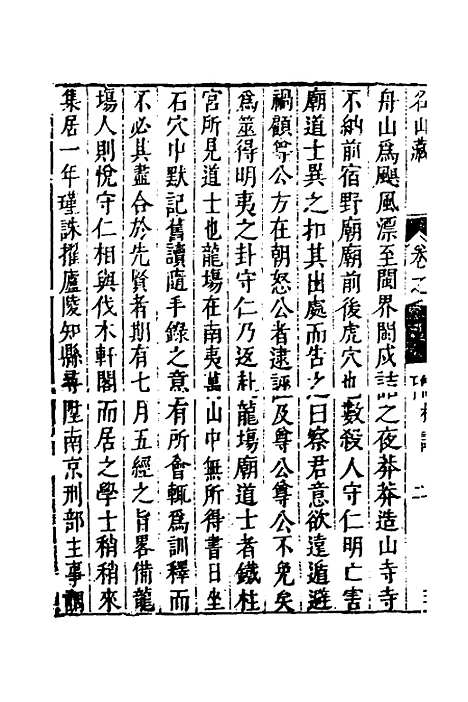 名山藏 卷之
舟山爲颶風漂至閩界閩戍詰之夜莽莽造山寺寺
不納前宿野廟廟前後虎穴也數殺人守仁明亡害
廟道士異之扣其出處而告之曰察君意欲遠遁避
禍顧尊公方在朝怒公者逮誣及尊公尊公不免矣
爲筮得明夷之卦守仁乃返赴龍場廟道士者鐵柱
宮所見道士也龍場在南夷萬山中無所得書日坐
石穴中默記舊讀隨手錄之意有所會輒爲訓釋而
不必其盡合於先賢者期有七月五經之旨畧備龍
場人則悅守仁相與伐木軒閣而居之學士稍稍來
集居一年瑾誅擢廬陵知縣尋陞南京刑部主事調